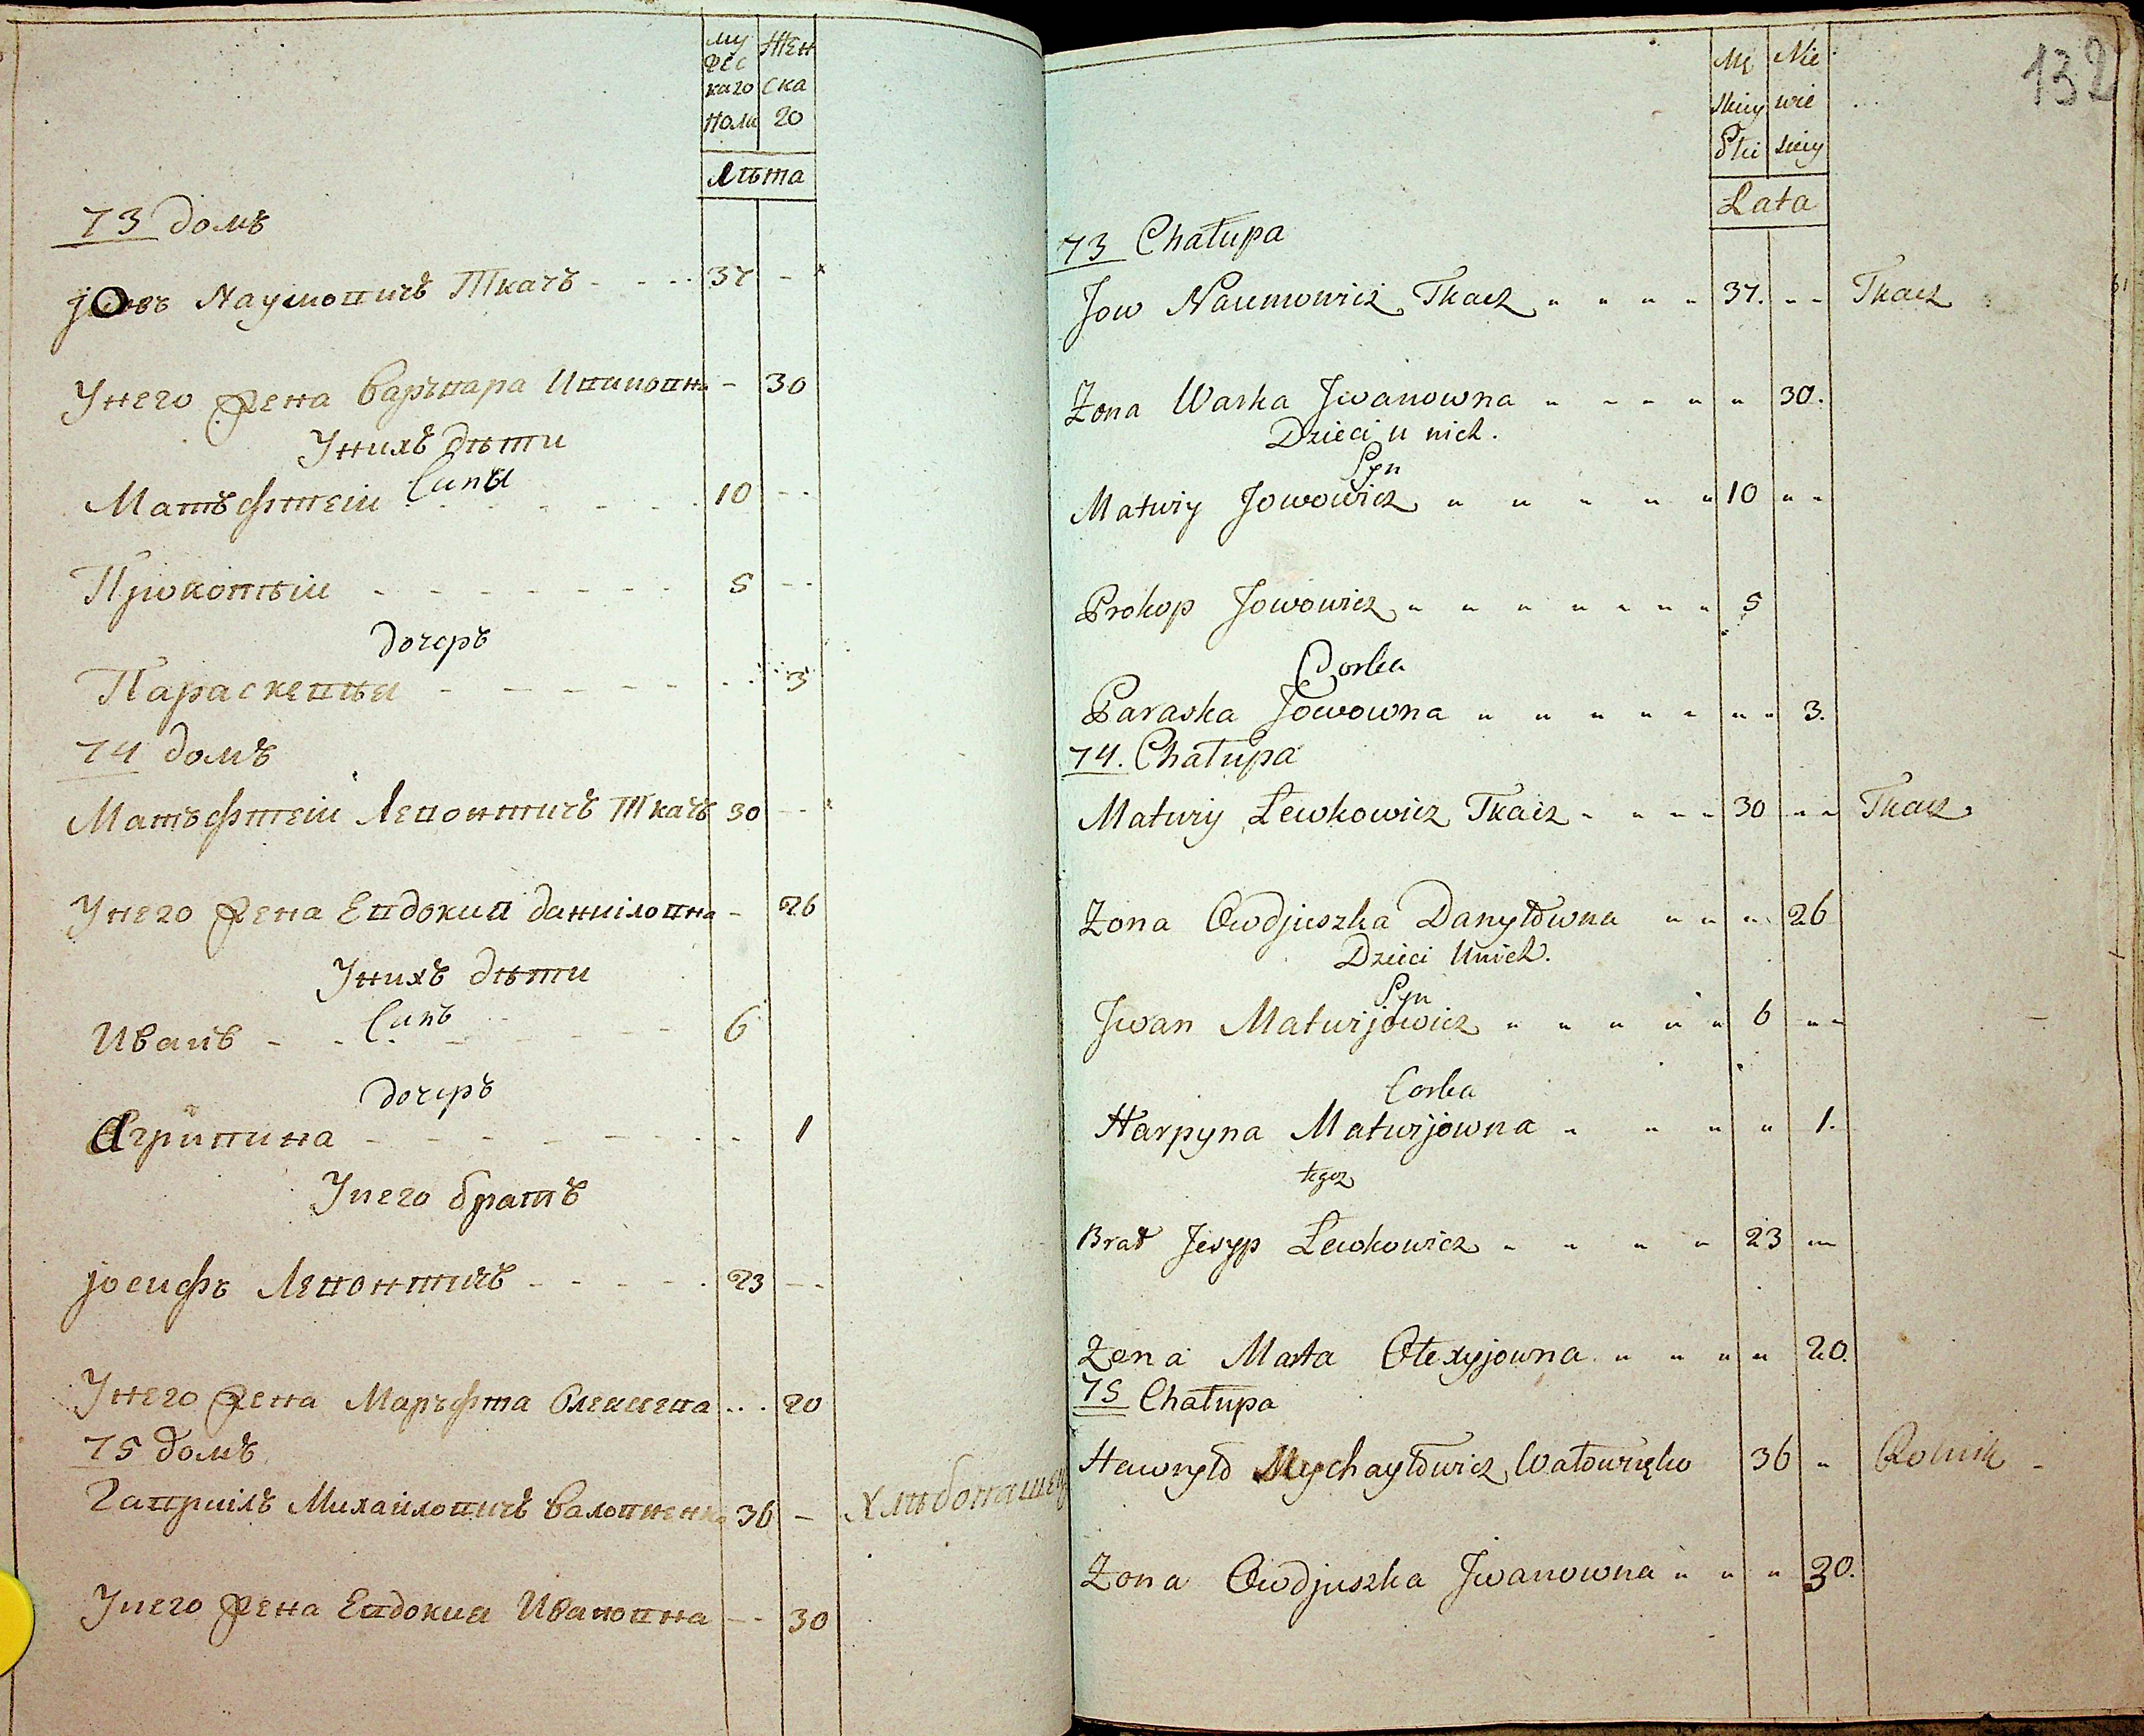 му жен
жес ска
каго го
полу
лѣта
73 домъ
Іовъ Наумовичъ Ткачъ 37 -
Унего жена Варъвара Ивановна - 30
Унихъ дѣти
Сины
Матъфтей 10 - -
Прокопѣй 5 - -
дочеръ
Параскевѣя 3
74 домъ
Матъфтей Левонтичъ Ткачъ 30 - -
Унего жена Евдокия Даниіловна - 26
Унихъ дѣти
Синъ
Иванъ 6
дочеръ
Агрипина 1
Унего братъ
Іосифъ Левонтичъ 23 - -
Унего жена Маръфта Олексева 20
75 домъ
Гавриілъ Михайловичъ Валовженко 36 - Хлѣбопашец
Унего жена Евдокия Ивановна - - 30
132
Mę Nie
skiey wie
Płci skiey
Lata
73 Chałupa
Jow Naumowicz Tkacz 37. Tkacz
Żona Warka Jwanowna 30.
Dzieci u nich.
Syn
Matwiy Jowowicz 10
Prokop Jowowicz 5
Corka
Paraska Jowowna 3.
74. Chałupa
Matwiy Lewkowicz Tkacz 30 Tkacz
Żona Owdjuszka Danyłowna 26
Dzieci Unich.
Syn
Jwan Matwijowicz 6
Corka
Harpyna Matwijowna 1.
tegoz
Brat Jesyp Lewkowicz 23
Zona Marta Ołexyjowna 20.
75 Chałupa
Hawryło Mychayłowicz Wałowżęko 36 Rolnik
Żona Owdjuszka Jwanowna 30.